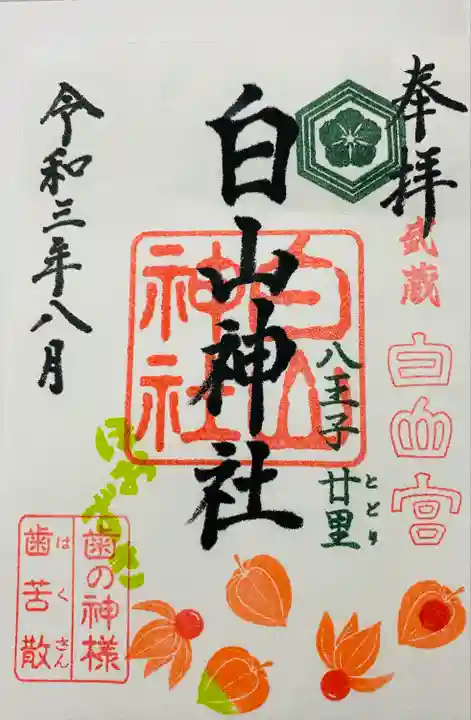 奉拝
武蔵
白山宮
白山神社
白山
神社
八王子 廿里
とどり
令和三年八月
ほおずき
歯の神様
歯苦散
はくさん